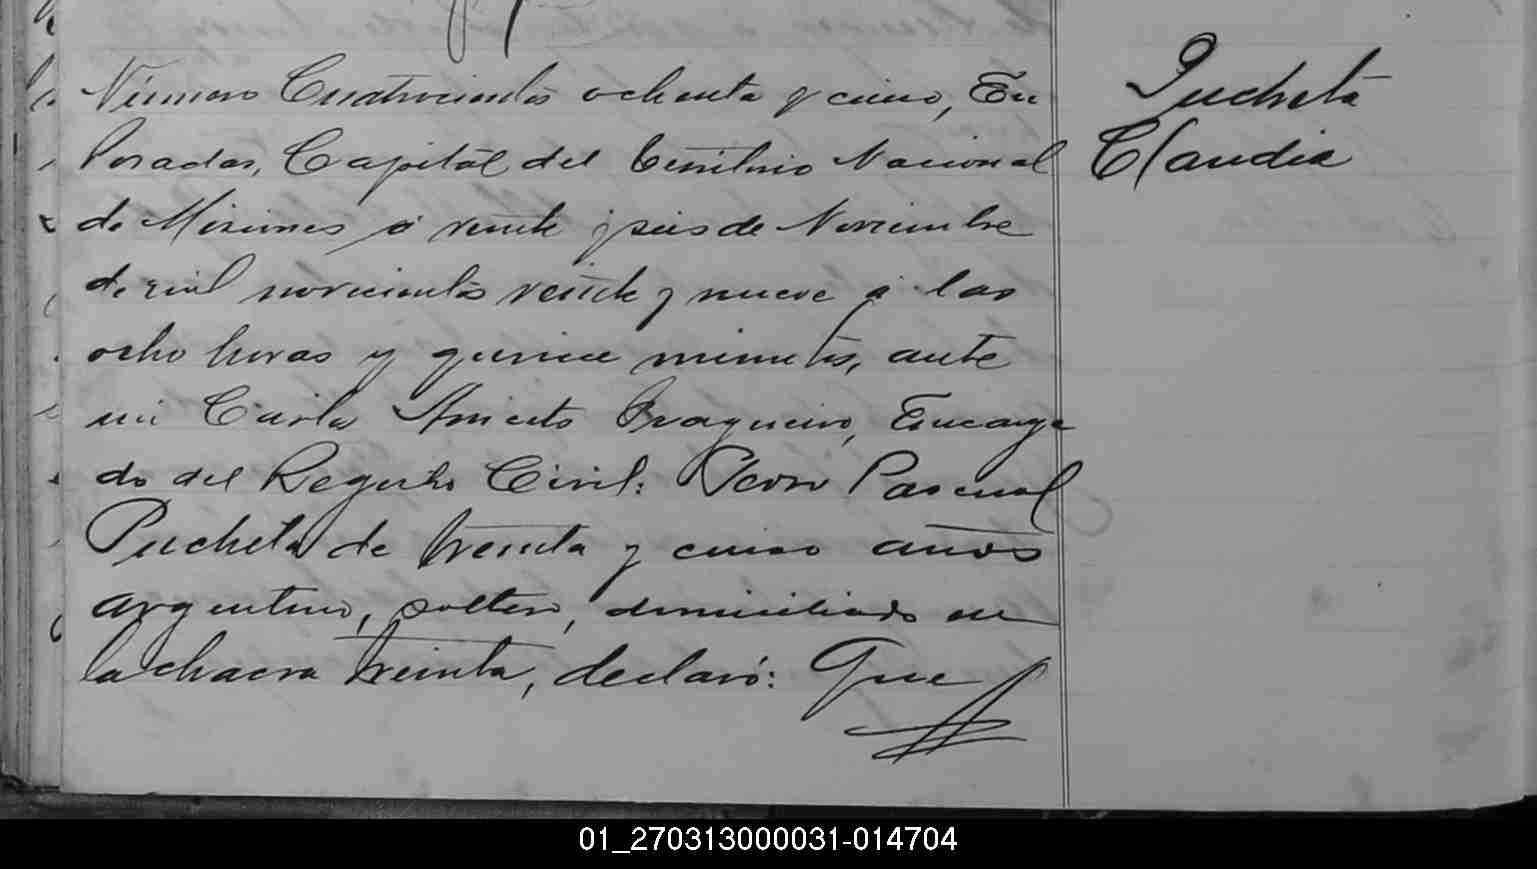 Número Cuatrocientos ochenta y cinco, En
Posadas, Capital del Territorio Nacional
de Misiones a veinte y seis de Noviembre
de mil novecientos veinte y nueve a las
ocho horas y quince minutos, ante
mi Aniceto Encarga
do del Registro Civil: Don Pascual
Pucheta de treinta y cinco años
argentino, soltero, domiciliado en
la chacra treinta, declaró: Que
Pucheta
Claudia
01_270313000031-014704